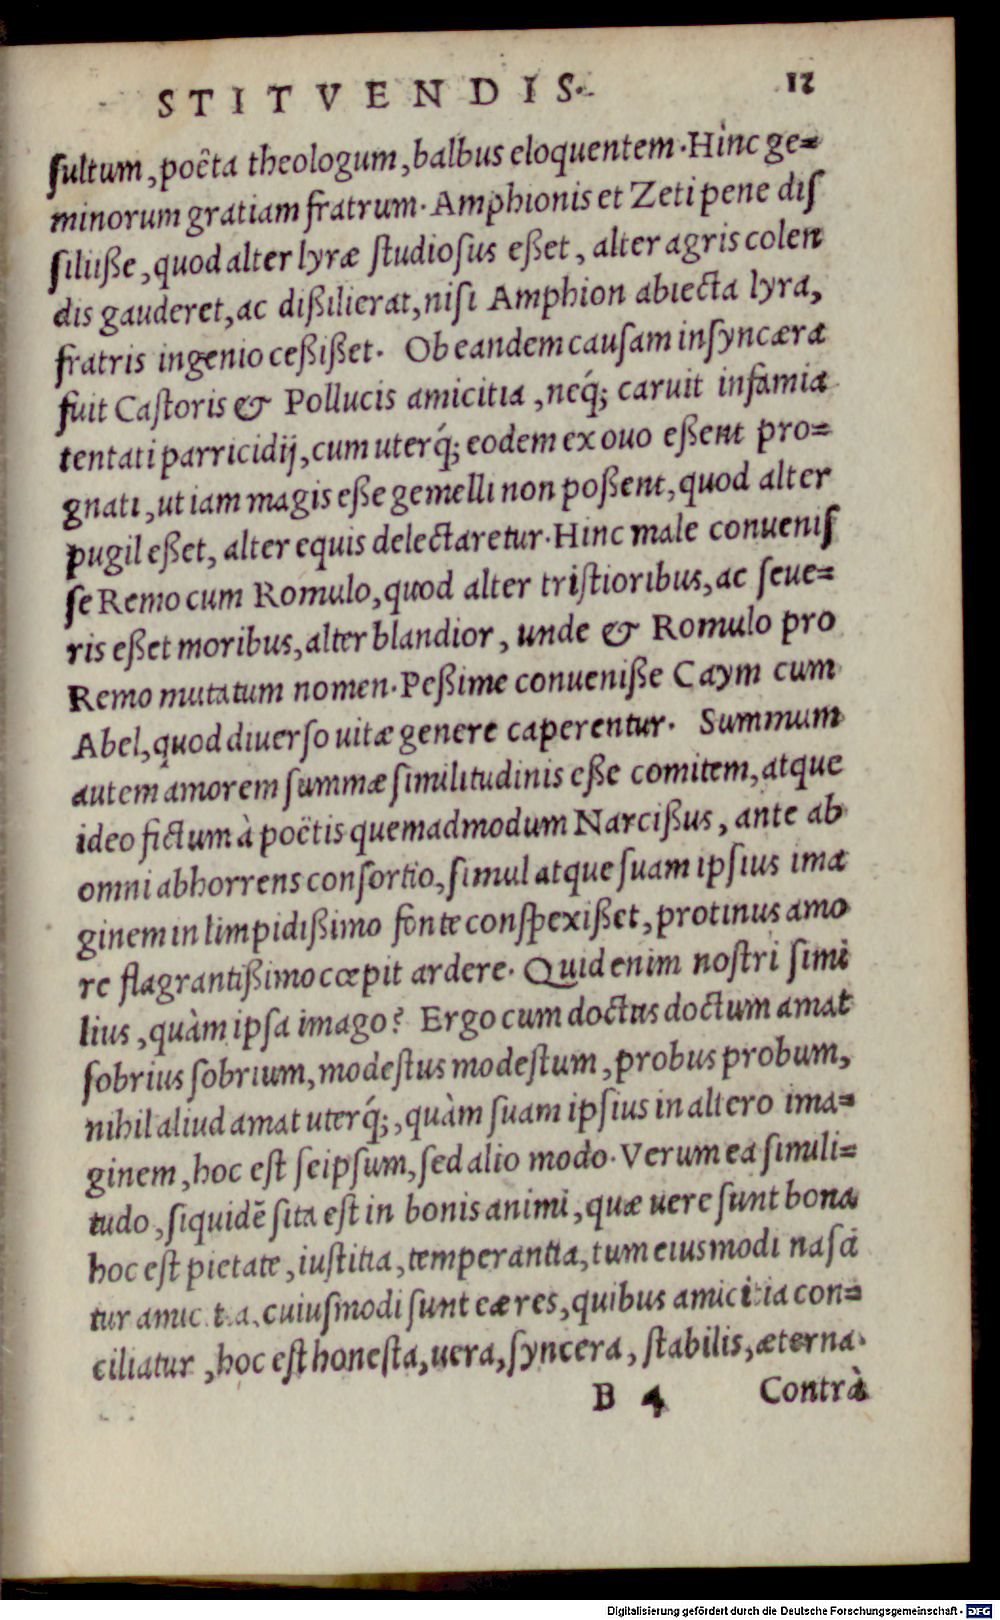 STITVENDIS. 12
ſultum, poêta theologum, balbus eloquentem. Hinc ge=
minorum gratiam fratrum. Amphionis et Zeti pene diſ
ſiliiſße, quod alter lyræ ſtudioſus eßet, alter agris colen
dis gauderet, ac dißilierat, niſi Amphion abiecta lyra,
fratris ingenio ceßißet. Ob eandem cauſam inſyncæra
fuit Caſtoris & Pollucis amicitia, neq́; caruit infamia
tentati parricidij, cum uterq́; eodem ex ouo eßent pro=
gnati, ut iam magis eße gemelli non poßent, quod alter
pugil eßet, alter equis delectaretur. Hinc male conueniſ
ſe Remo cum Romulo, quod alter triſtioribus, ac ſeue=
ris eßet moribus, alter blandior, unde & Romulo pro
Remo mutatum nomen. Peßime conueniße Caym cum
Abel, quod diuerſo uitæ genere caperentur. Summum
autem amorem ſummæ ſimilitudinis eße comitem, atque
ideo fictum à poëtis quemadmodum Narcißus, ante ab
omni abhorrens conſortio, ſimul atque ſuam ipſius ima
ginem in limpidißimo fonte conſpexißet, protinus amo
re flagrantißimo cœpit ardere. Quid enim noſtri ſimi
lius, quàm ipſa imago? Ergo cum doctus doctum amat
ſobrius ſobrium, modeſtus modeſtum, probus probum,
nihil aliud amat uterq́;, quàm ſuam ipſius in altero ima=
ginem, hoc eſt ſeipſum, ſed alio modo. Verum ea ſimili=
tudo, ſiquidẽ ſita eſt in bonis animi, quæ uere ſunt bona
hoc eſt pietate, iuſtitia, temperantia, tum eiusmodi naſci
tur amic t a, cuiuſmodi ſunt eæ res, quibus amicitia con=
ciliatur, hoc eſt honeſta, uera, ſyncera, ſtabilis, æterna.
B 4 Contrà
Digitalisierung gefördert durch die Deutsche Forschungsgemeinschaft - DFG